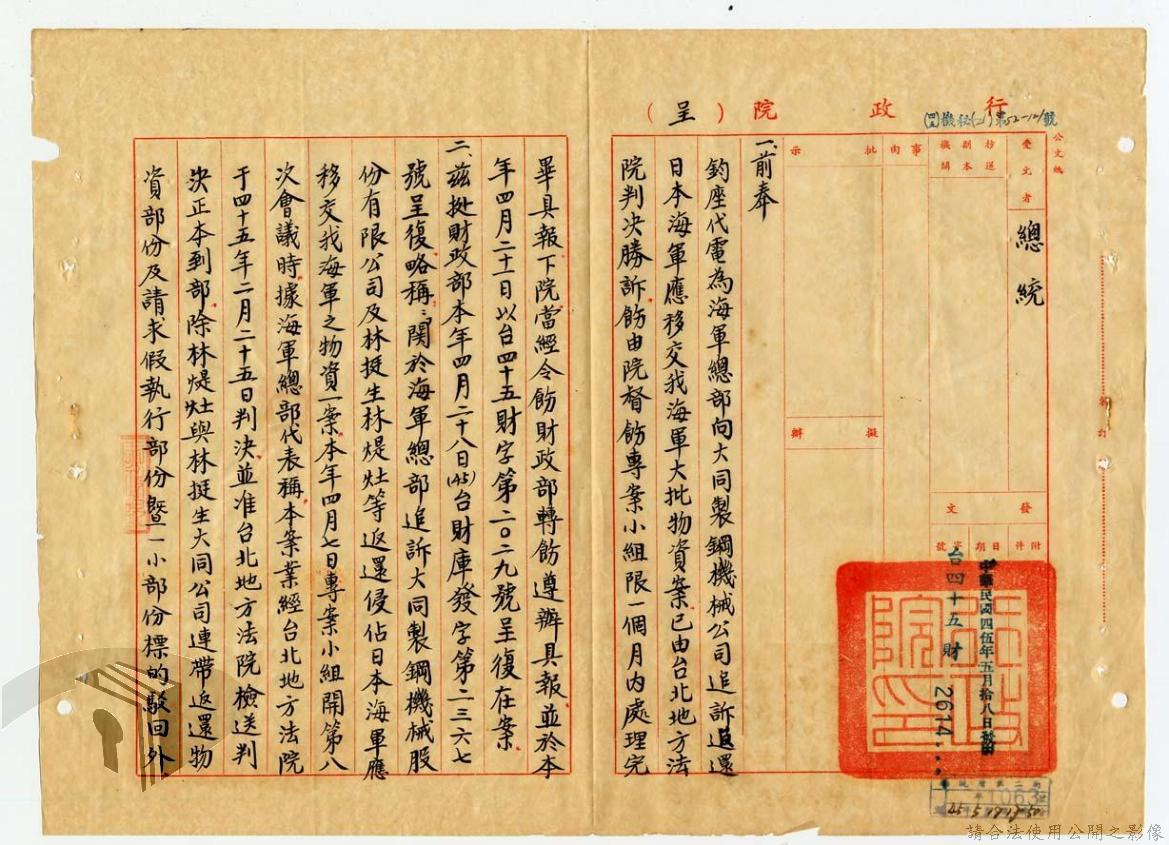 行政院（呈）
(四五)機秘(乙)第52-121號
公文紙
受文者
總統
抄送副本機關
事由
批示
擬辦
發文
附件
日期
字號
中華民國四伍年五月拾八日發出
台四十五財
2614
行政院印
一、前奉
鈞座代電為海軍總部向大同製鋼機械公司追訴追還
日本海軍應移交我海軍大批物資案已由台北地方法
院判决勝訴飭由院督飭專案小組限一個月內處理完
畢具報下院當經令飭財政部轉飭遵辦具報並於本
年四月二十一日以台四十五財字第二〇二九號呈復在案
二、茲據財政部本年四月二十八日(45)台財庫發字第二三六七
號呈復略稱：「関於海軍總部追訴大同製鋼機械股
份有限公司及林挺生林煶灶等返還侵佔日本海軍應
移交我海軍之物資一案本年四月七日專案小組開第八
次會議時據海軍總部代表稱本案業經台北地方法院
于四十五年二月二十五日判决並准台北地方法院檢送判
决正本到部除林煶灶與林挺生大同公司連帶返還物
資部份及請求假執行部份暨一小部份標的駁回外
裝
訂
063
請合法使用公開之影像